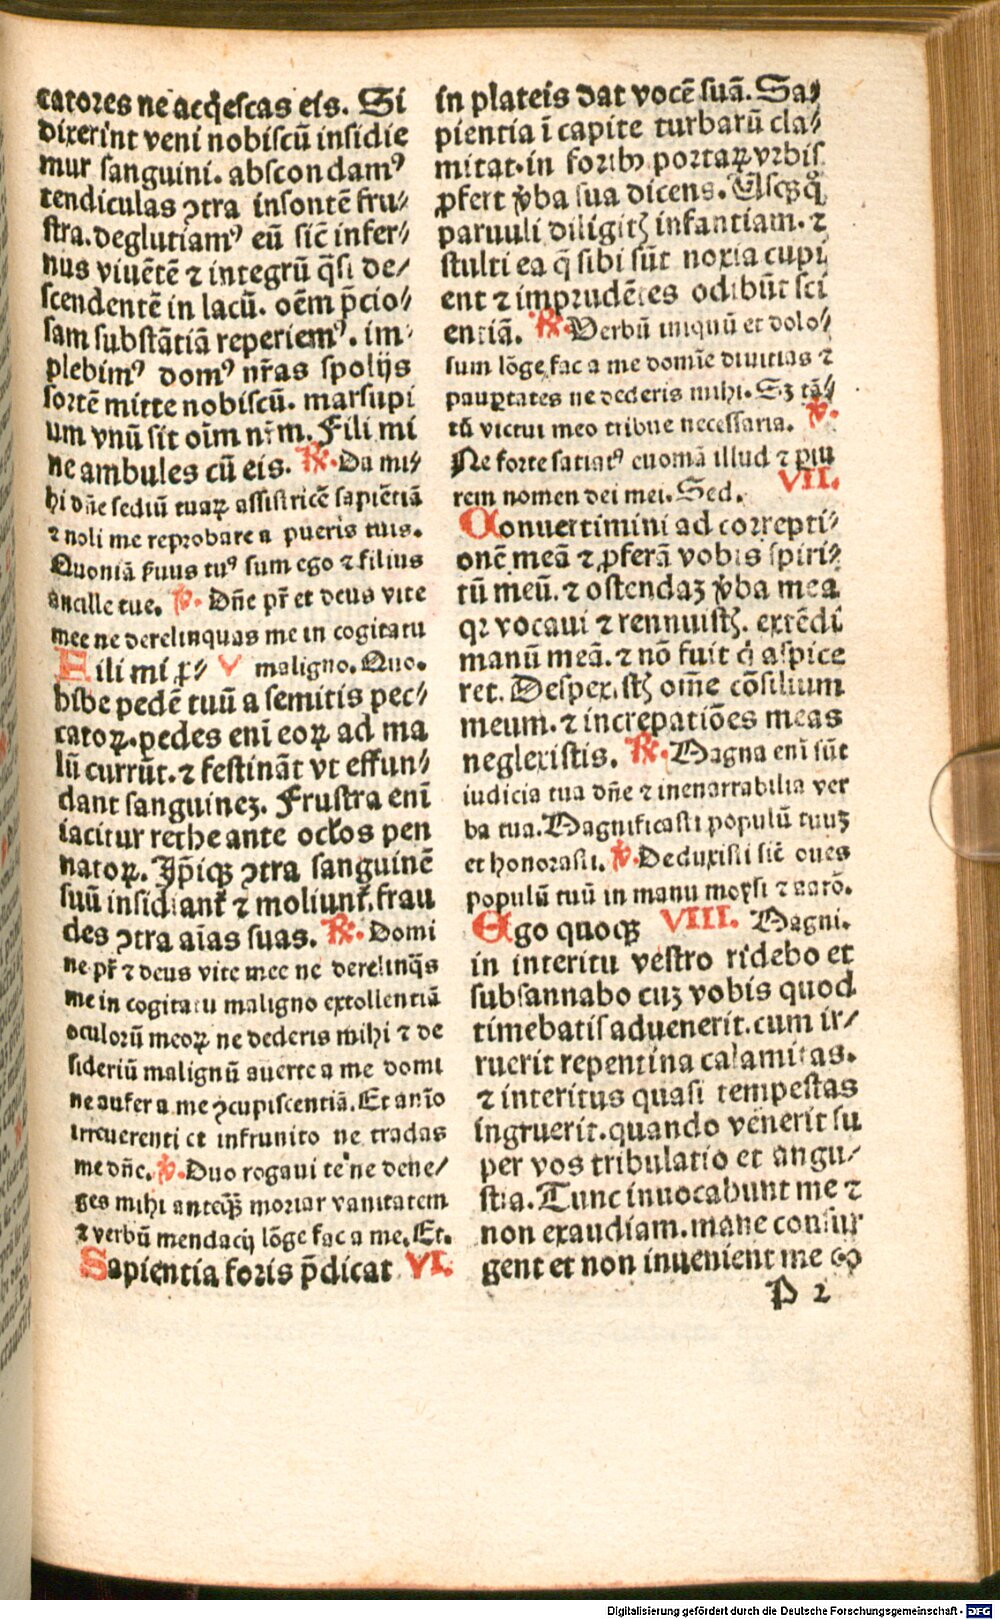 catores ne acq̇escas eis. Si
dixerint veni nobiscū insidie
mur sanguini. abscondamꝰ
tendiculas ꝯtra insontē fru⸗
stra. deglutiamꝰ eū sic̄ infer⸗
nus viuētē ⁊ integrū q̄si de⸗
scendentē in lacū. oēm p̄cio⸗
sam substātiā reperiemꝰ. im⸗
plebimꝰ domꝰ nr̄as spolijs
sortē mitte nobiscū. marsupi
um vnū sit oīm nr̄m. Fili mi
ne ambules cū eis. ℟. Da mi⸗
hi dn̄e sediū tuaꝝ assistricē sapiētiā
⁊ noli me reprobare a pueris tuis.
Quoniā ẜuus tuꝰ sum ego ⁊ filius
ancille tue. ℣. Dn̄e pr̄ et deus vite
mee ne derelinquas me in cogitatu
Fili mi ꝓ⸗ V maligno. Quo.
hibe pedē tuū a semitis pec⸗
catoꝝ. pedes enī eoꝝ ad ma
lū currūt. ⁊ festināt vt effun⸗
dant sanguineꝫ. Frustra enī
iacitur rethe ante oct̄os pen
natoꝝ. Ip̄iqꝫ ꝯtra sanguinē
suū insidiant̄ ⁊ moliunt̄. frau
des ꝯtra aīas suas. ℟. Domi
ne pr̄ ⁊ deus vite mee ne derelinq̄s
me in cogitatu maligno extollentiā
oculorū meoꝝ ne dederis mihi ⁊ de
sideriū malignū auerte a me domi
ne aufer a me ꝯcupiscentiā. Et anīo
irreuerenti et infrunito ne tradas
me dn̄e. ℣. Duo rogaui te ne dene⸗
ges mihi anteqꝫ moriar vanitatem
⁊ verbū mendacij lōge fac a me. Et.
Sapientia foris p̄dicat VI.
in plateis dat vocē suā. Sa⸗
pientia ī capite turbarū cla⸗
mitat. in foribꝰ portaꝝ vrbis
ꝓfert v̄ba sua dicens. Usqꝫ q̊
paruuli diligitꝭ infantiam. ⁊
stulti ea q̄ sibi sūt noxia cupi
ent ⁊ imprudētes odibūt sci
entiā. ℟. Verbū iniquū et dolo⸗
sum lōge fac a me domīe diuitias ⁊
paupertates ne dederis mihi. Sꝫ tā⸗
tū victui meo tribue necessaria. ℣.
Ne forte satiatꝰ euomā illud ⁊ ꝑiu
rem nomen dei mei. Sed. VII.
Conuertimini ad correpti⸗
onē meā ⁊ ꝓferā vobis spiri⸗
tū meū. ⁊ ostendaꝫ v̄ba mea
qꝛ vocaui ⁊ rennuistꝭ. extēdi
manū meā. ⁊ nō fuit q̇ aspice
ret. Despexistꝭ om̄e cōsilium
meum. ⁊ increpatiōes meas
neglexistis. ℟. Magna enī sūt
iudicia tua dn̄e ⁊ inenarrabilia ver
ba tua. Magnificasti populū tuuꝫ
et honorasti. ℣. Deduxisti sic̄ oues
populū tuū in manu moysi ⁊ aarō.
Ego quoqꝫ VIII. Magni.
in interitu vestro ridebo et
subsannabo cuꝫ vobis quod
timebatis aduenerit. cum ir⸗
ruerit repentina calamitas.
⁊ interitus quasi tempestas
ingruerit. quando venerit su
per vos tribulatio et angu⸗
stia. Tunc inuocabunt me ⁊
non exaudiam. mane consur
gent et non inuenient me eo
P 2
Digitalisierung gefördert durch die Deutsche Forschungsgemeinschaft - DFG